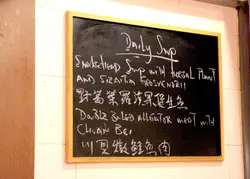 Daily Soup
Snakehead Soup with Herbal Plant
and Siraitia Grosvenorii
野葛菜羅漢果煲生魚
Double boiled alligator meat with
Chuan Bei
川貝燉鱷魚肉